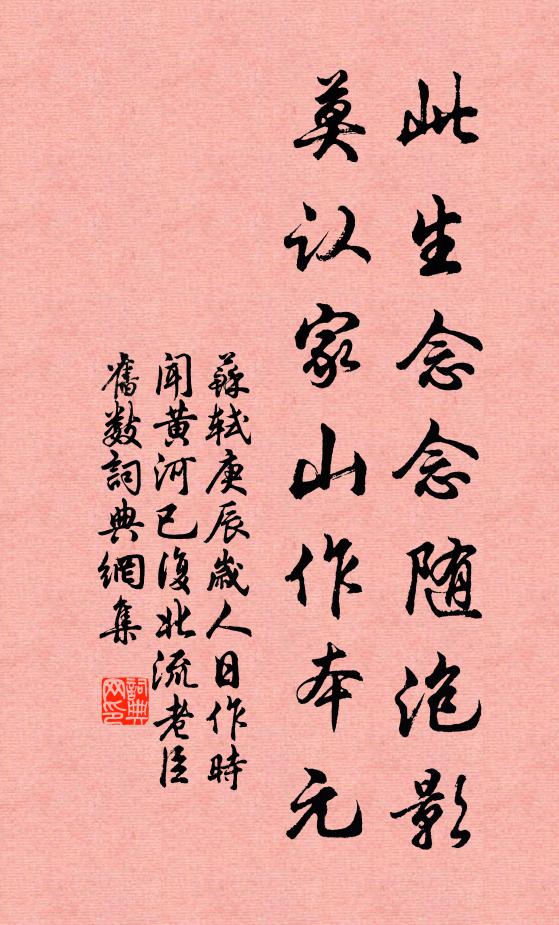 此生念念随泡影
莫认家山作本元
蘇軾庚辰歲人日作時
聞黃河已復北流老臣
舊數詞典網集
詞典网印